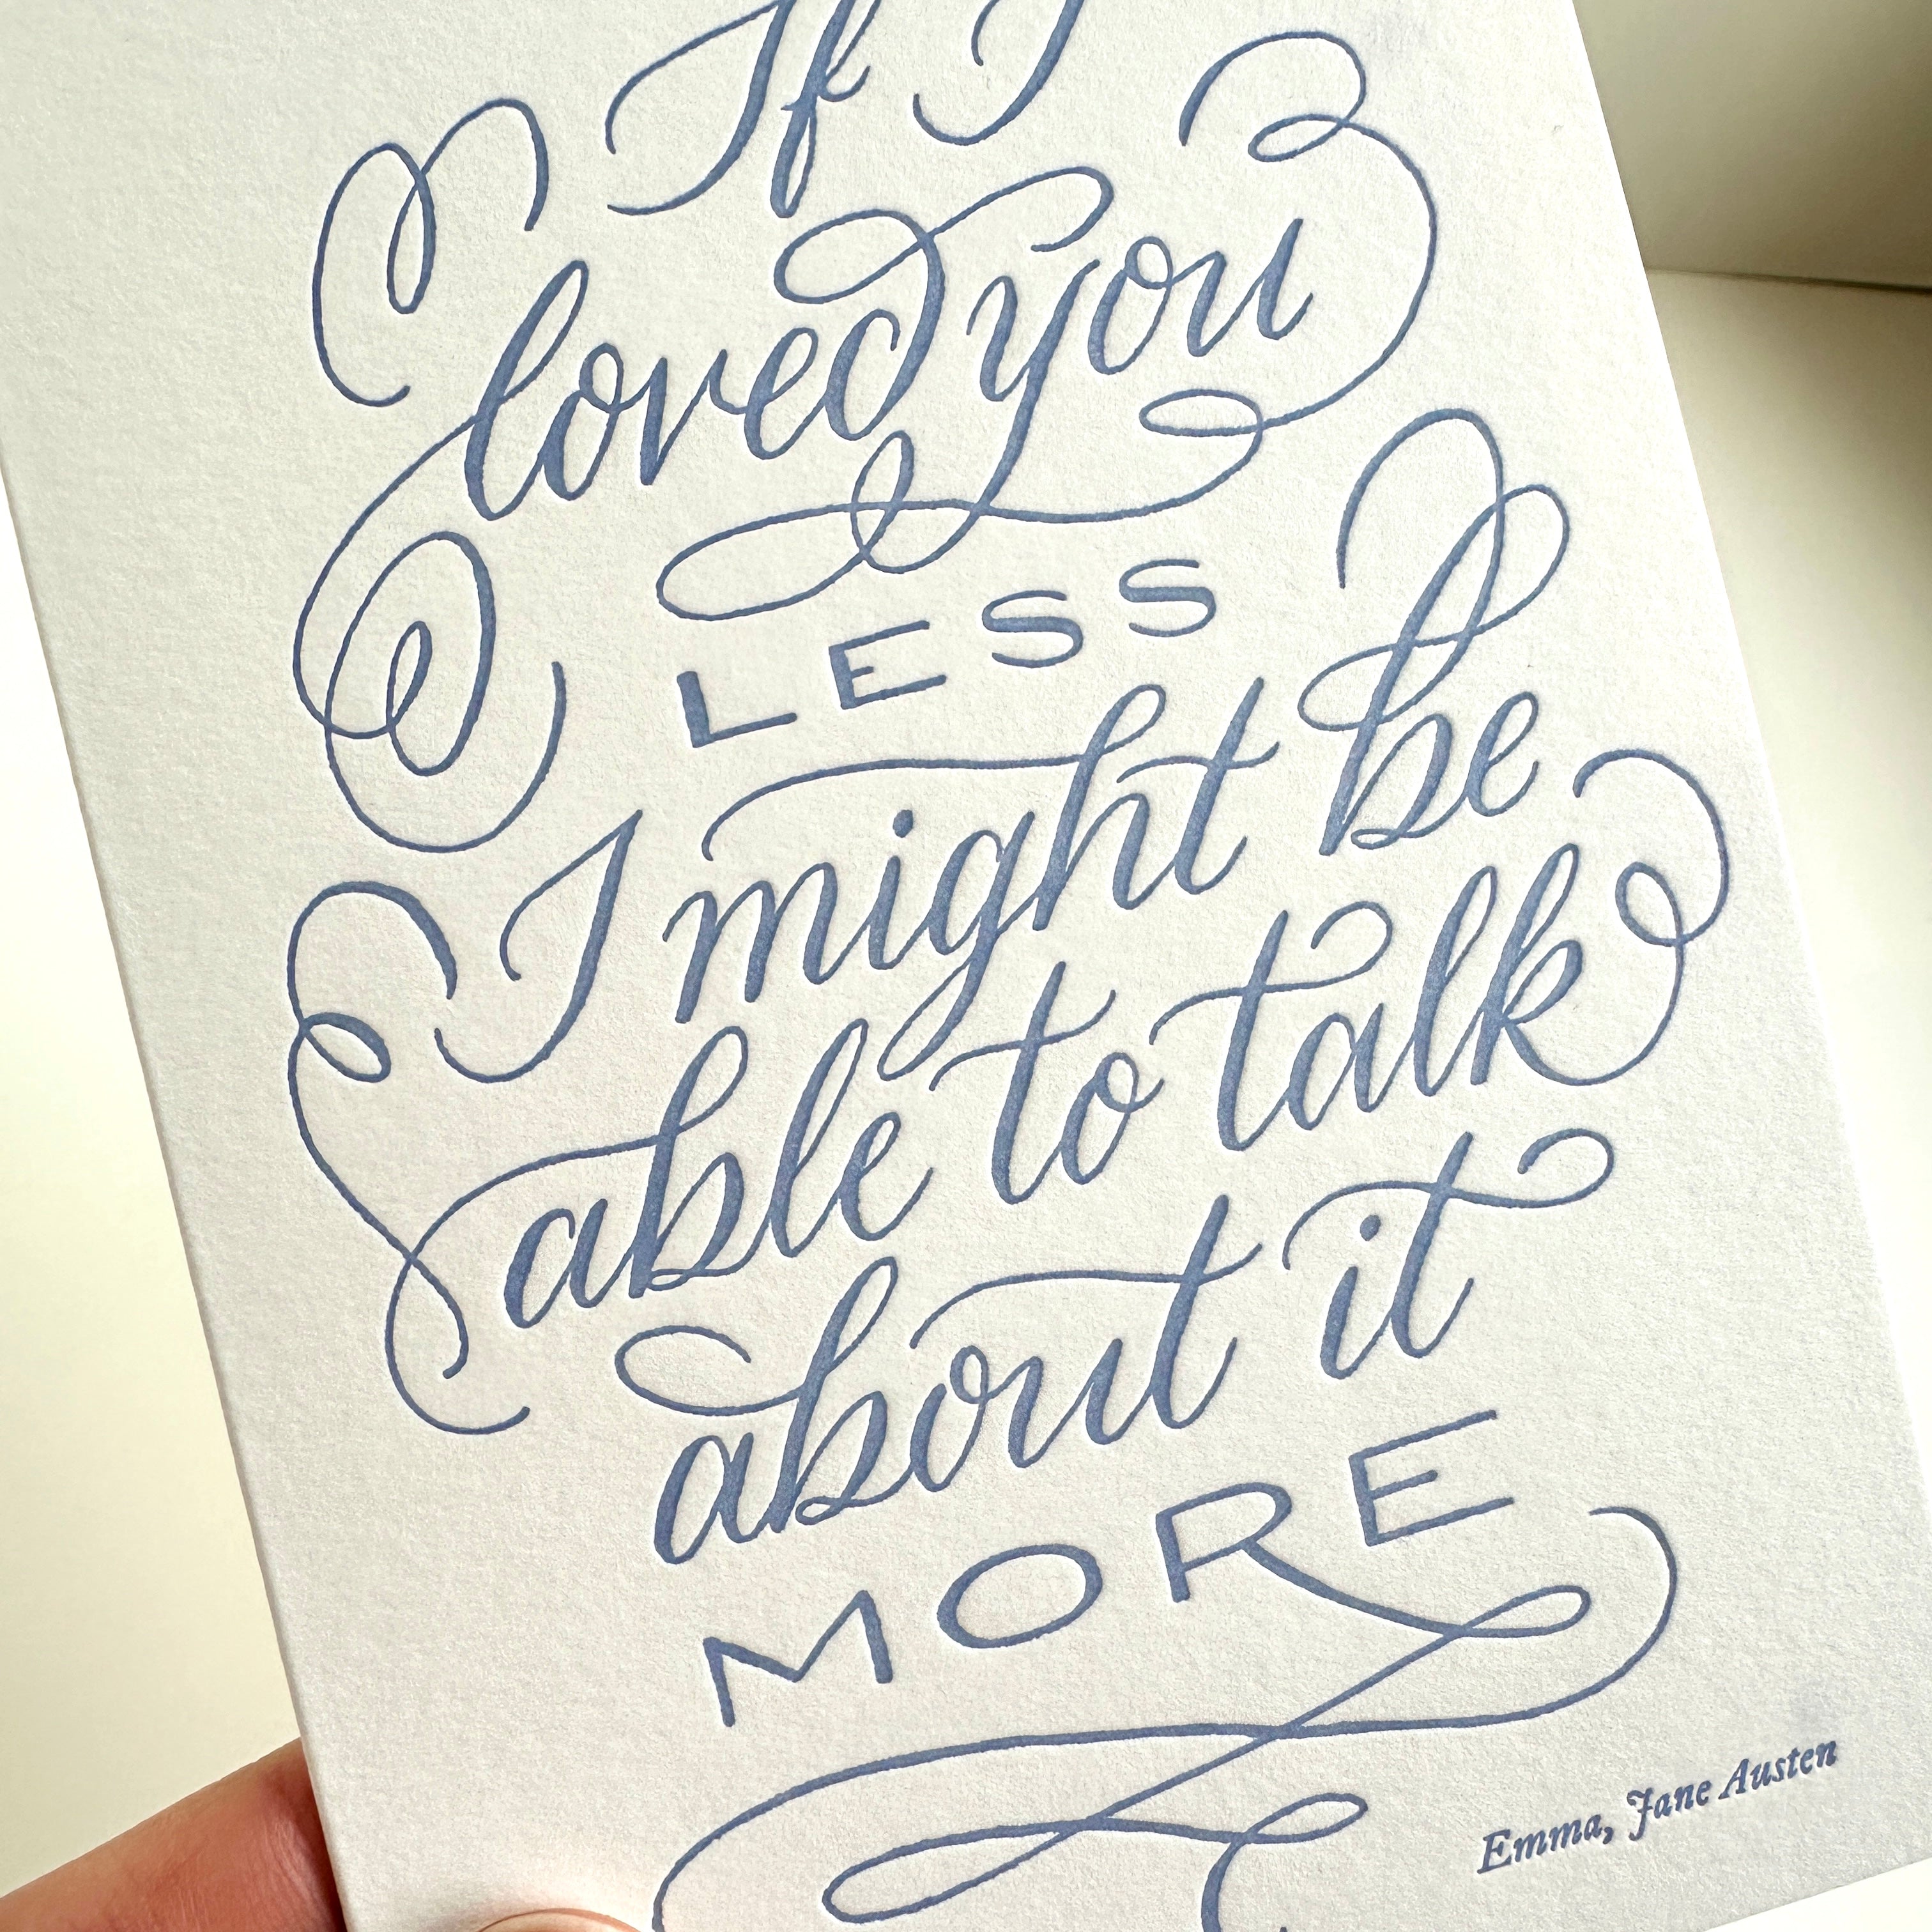 If I
loved you
LESS
I might be
able to talk
about it
MORE
Emma, Jane Austen